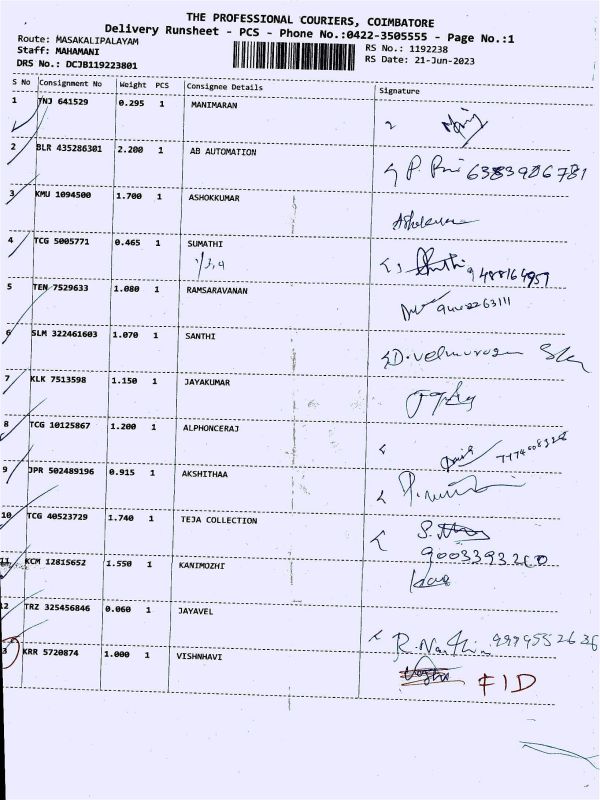 THE PROFESSIONAL COURIERS, COIMBATORE
Delivery Runsheet - PCS - Phone No.:0422-3505555 - Page No.:1
Route: MASAKALIPALAYAM
RS No.: 1192238
Staff: MAHAMANI
RS Date: 21-Jun-2023
DRS No.: DCJB119223801
S No Consignment No Weight PCS Consignee Details Signature
1 TNJ 641529 0.295 1 MANIMARAN
2 BLR 435286301 2.200 1 AB AUTOMATION
6383906781
3 KMU 1094500 1.700 1 ASHOKKUMAR
Ashokkumar
4 TCG 5005771 0.465 1 SUMATHI
9488164959
5 TEN 7529633 1.080 1 RAMSARAVANAN
6 SLM 322461603 1.070 1 SANTHI
D. Velmurugan
7 KLK 7513598 1.150 1 JAYAKUMAR
8 TCG 10125867 1.200 1 ALPHONCERAJ
9 JPR 502489196 0.915 1 AKSHITHAA
10 TCG 40523729 1.740 1 TEJA COLLECTION
9003393260
11 KCM 12815652 1.550 1 KANIMOZHI
12 TRZ 325456846 0.060 1 JAYAVEL
9999552636
13 KRR 5720874 1.000 1 VISHNHAVI
FID